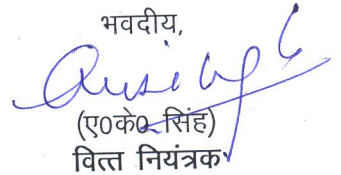 भवदीय,
(ए०के० सिंह)
वित्त नियंत्रक